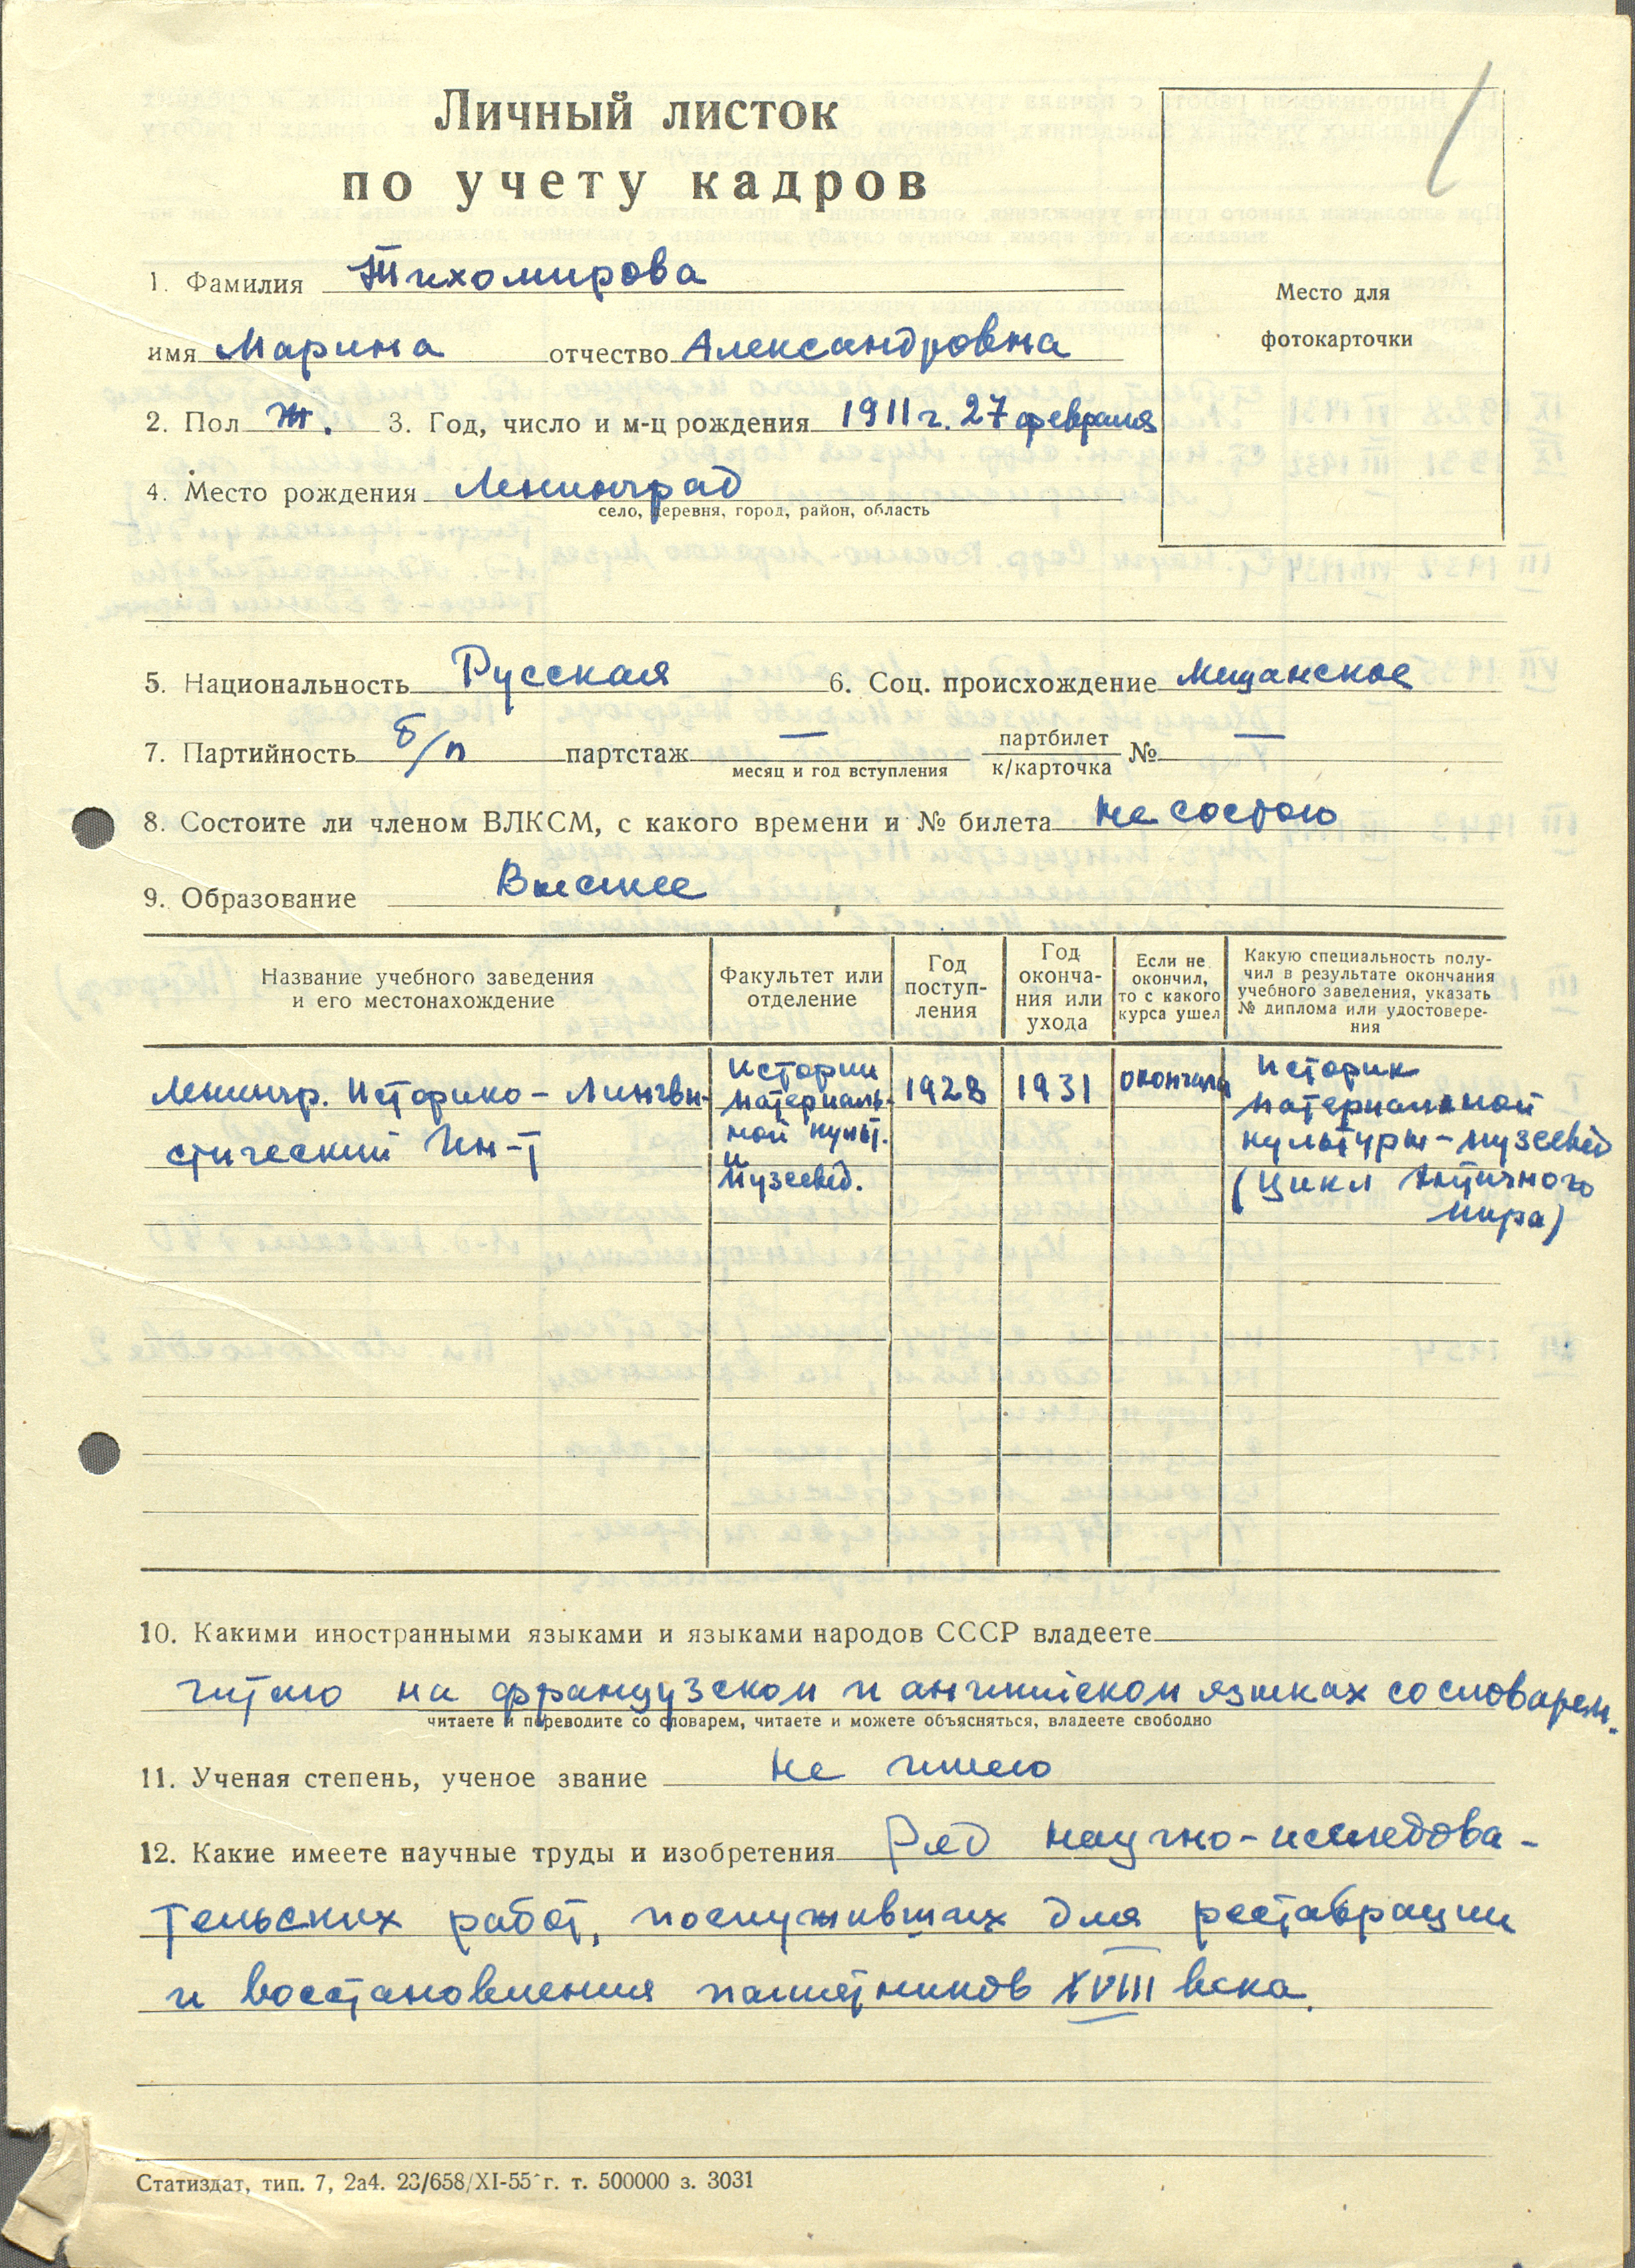 Личный листок
по учету кадров
1. Фамилия Тихомирова
имя Марина отчество Александровна
2. Пол ж. 3. Год, число и м-ц рождения 1911 г. 27 февраля
4. Место рождения Ленинград
село, деревня, город, район, область
Место для
фотокарточки
5. Национальность Русская 6. Соц. происхождение Мещанское
7. Партийность б/п партстаж — партбилет № —
месяц и год вступления к/карточка
8. Состоите ли членом ВЛКСМ, с какого времени и № билета не состою
9. Образование Высшее
Название учебного заведения
и его местонахождение
Факультет или
отделение
Год
поступ-
ления
Год
оконча-
ния или
ухода
Если не
окончил,
то с какого
курса ушел
Какую специальность полу-
чил в результате окончания
учебного заведения, указать
№ диплома или удостовере-
ния
Ленингр. Историко-Лингви-
стический Ин-т
Истории
материаль-
ной культ.
и
музеевед.
1928
1931
окончила
Историк
материальной
культуры-музеевед
(цикл Античного
мира)
10. Какими иностранными языками и языками народов СССР владеете
читаю на французском и английском языках со словарем.
читаете и переводите со словарем, читаете и можете объясняться, владеете свободно
11. Ученая степень, ученое звание не имею
12. Какие имеете научные труды и изобретения Ряд научно-исследова-
тельских работ, послуживших для реставрации
и восстановления памятников XVIII века.
Статиздат, тип. 7, 2а4. 23/658/XI-55 г. т. 500000 з. 3031